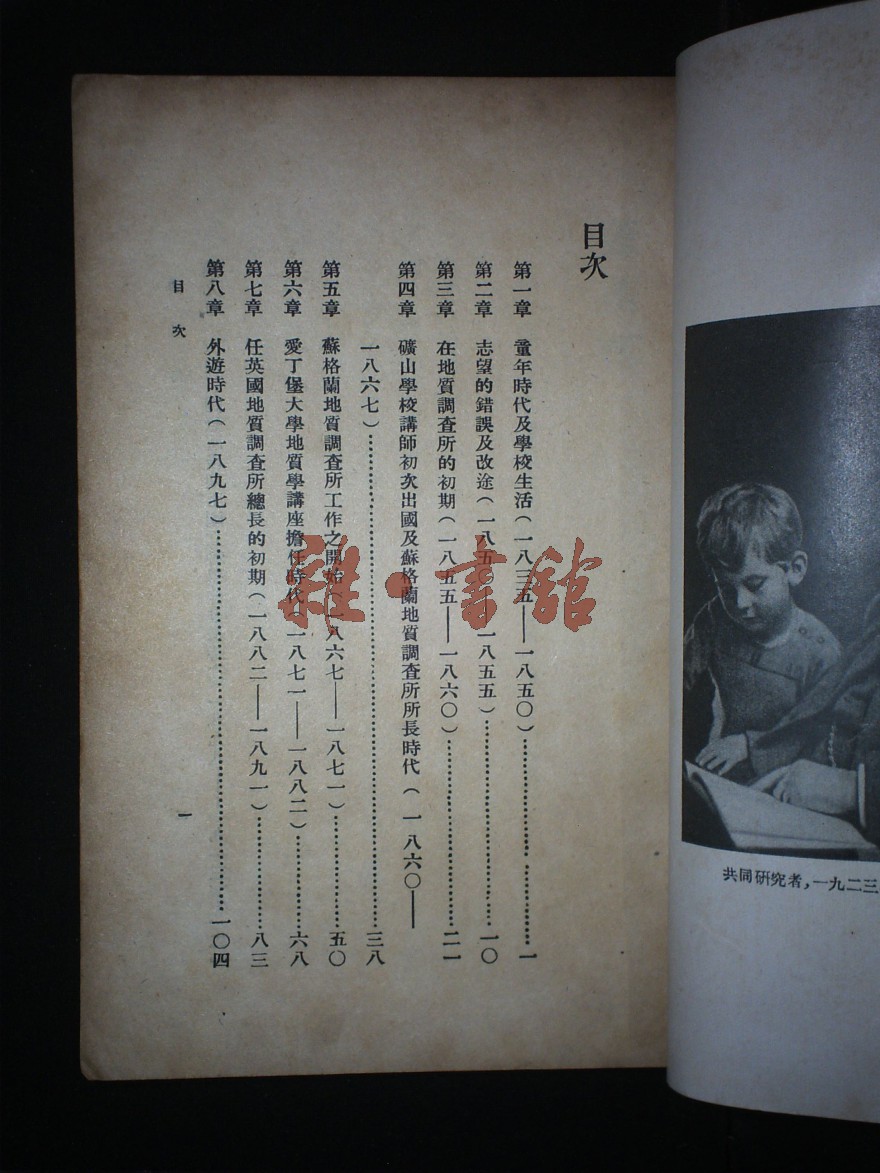 目次
第一章　童年時代及學校生活(一八三五——一八五〇)…………一
第二章　志望的錯誤及改途(一八五〇——一八五五)…………一〇
第三章　在地質調查所的初期(一八五五——一八六〇)…………二一
第四章　礦山學校講師初次出國及蘇格蘭地質調查所所長時代(一八六〇——
一八六七)…………三八
第五章　蘇格蘭地質調查所工作之開始(一八六七——一八七一)…………五〇
第六章　愛丁堡大學地質學講座擔任時代(一八七一——一八八二)…………六八
第七章　任英國地質調查所總長的初期(一八八二——一八九一)…………八三
第八章　外遊時代(一八九七)…………一〇四
目次　一
共同研究者,一九二三
雜·書館